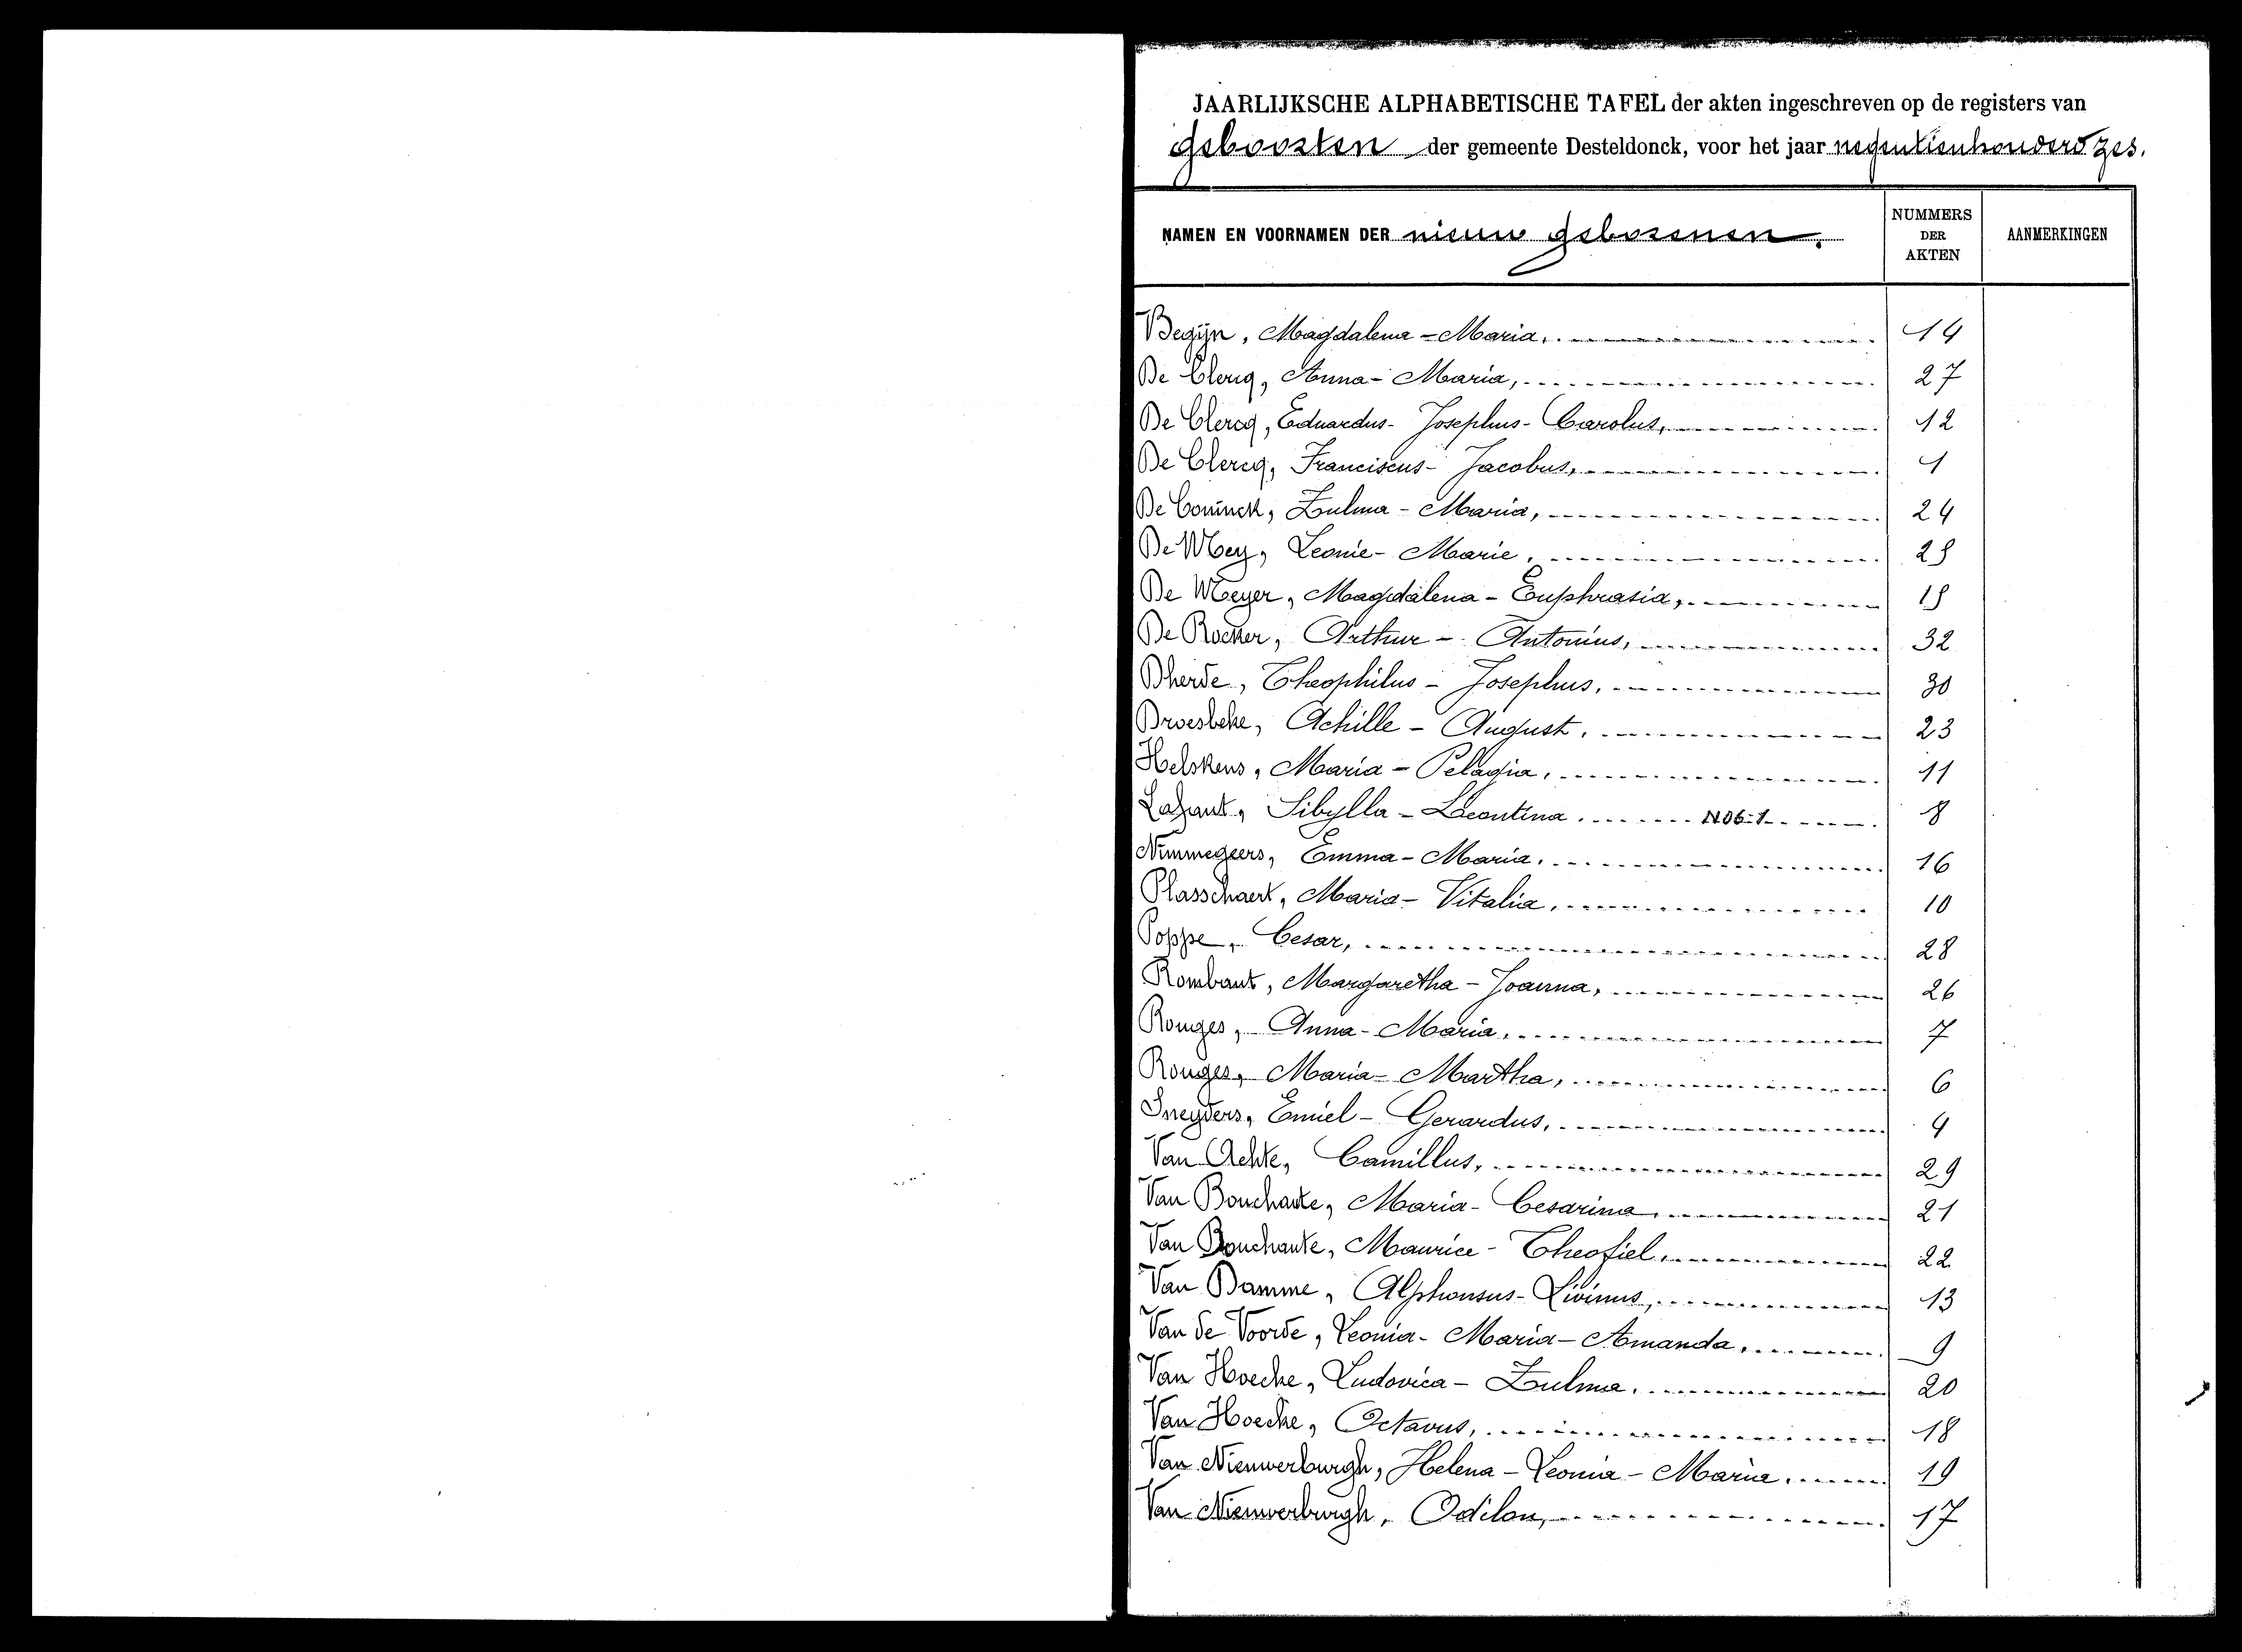 JAARLIJKSCHE ALPHABETISCHE TAFEL der akten ingeschreven op de registers van
geboorten der gemeente Desteldonck, voor het jaar negentienhonderd zes.
NAMEN EN VOORNAMEN DER nieuw geborenen.
NUMMERS DER AKTEN
AANMERKINGEN
Begijn, Magdalena - Maria, 14
De Clercq, Anna - Maria, 27
De Clercq, Eduardus - Josephus - Carolus, 12
De Clercq, Franciscus - Jacobus, 1
De Coninck, Zulma - Maria, 24
De Mey, Leonie - Marie, 25
De Meyer, Magdalena - Euphrasia, 15
De Rocker, Arthur - Antonius, 32
Dherde, Theophilus - Josephus, 30
Droesbeke, Achille - August, 23
Helskens, Maria - Pelagia, 11
Lahaut, Sibylla - Leontina. 8
Nimmegeers, Emma - Maria, 16
Plasschaert, Maria - Vitalia, 10
Poppe, Cesar, 28
Rombaut, Margaretha - Joanna, 26
Rouges, Anna - Maria, 7
Rouges, Maria - Martha, 6
Sneyders, Emiel - Gerardus, 4
Van Acker, Camillus, 29
Van Bouchaute, Maria - Cesarina, 21
Van Bouchaute, Maurice - Theofiel, 22
Van Damme, Alphonsus - Livinus, 13
Van de Voorde, Leonia - Maria - Amanda, 9
Van Hoecke, Ludovica - Zulma, 20
Van Hoecke, Octavus, 18
Van Nieuwerburgh, Helena - Leonia - Maria, 19
Van Nieuwerburgh, Odilon, 17